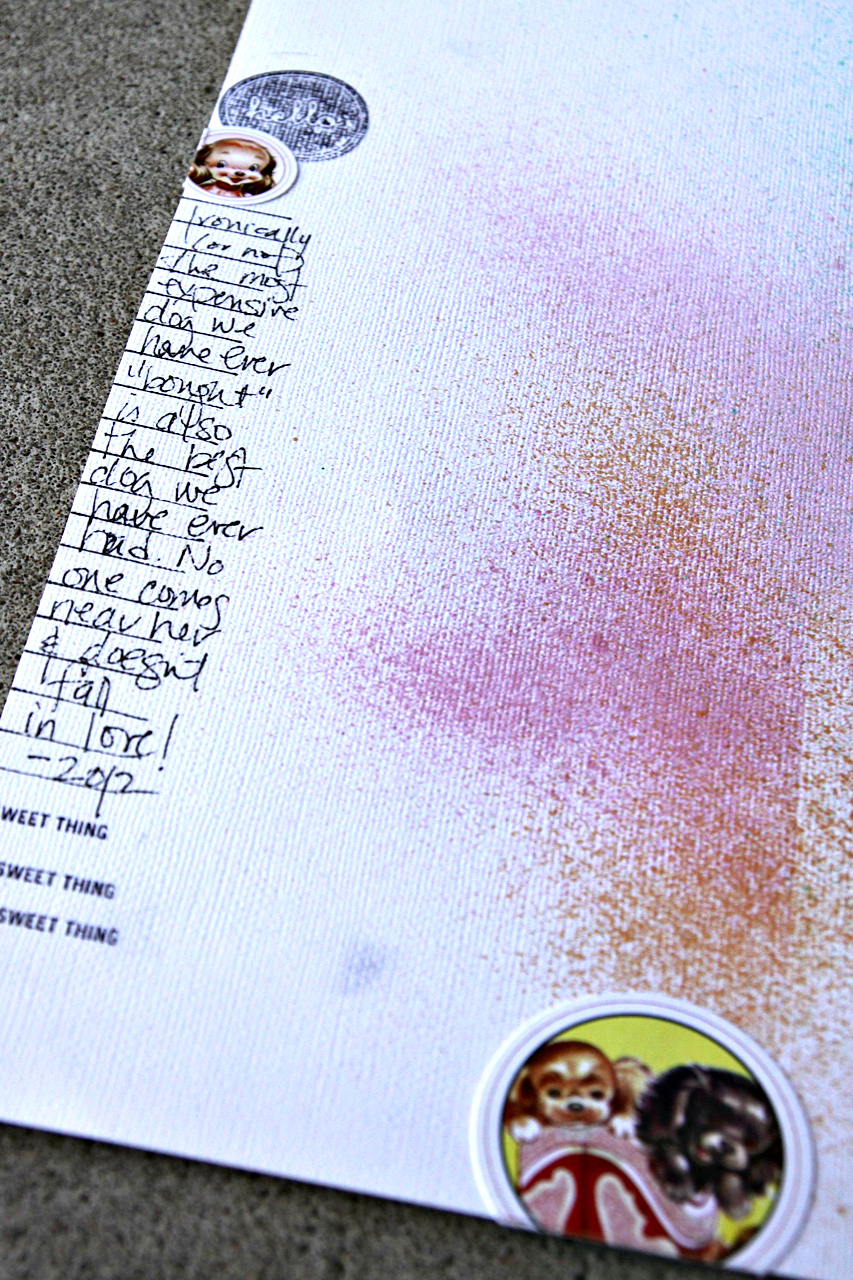 hello
Ironically
(or not)
the most
expensive
dog we
have ever
"bought"
is also
the best
dog we
have ever
had. No
one comes
near her
& doesn't
fall
in love!
-2012
WEET THING
SWEET THING
SWEET THING